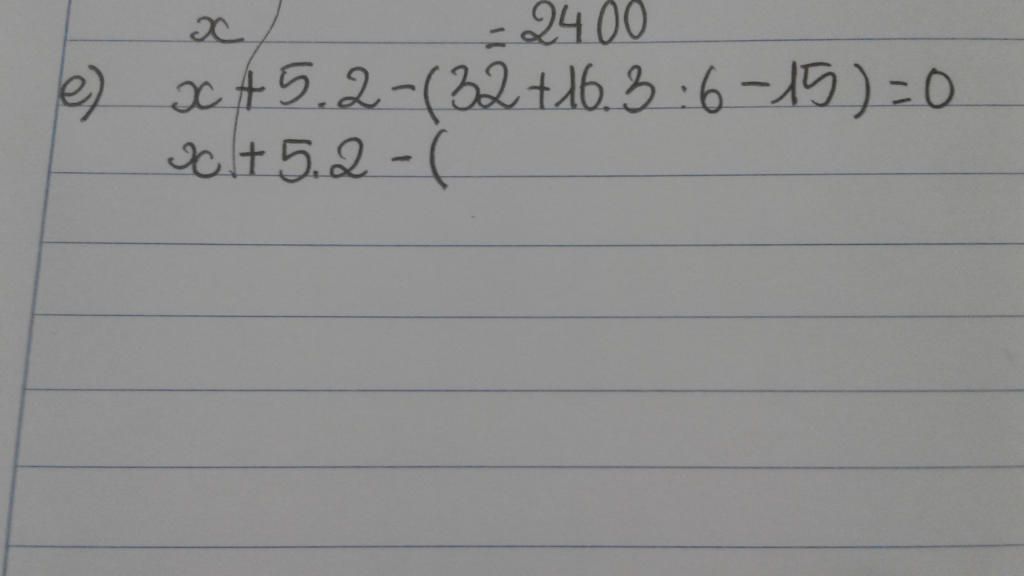 x = 2400
e) x + 5.2 - (32 + 16.3 : 6 - 15) = 0
x + 5.2 - (